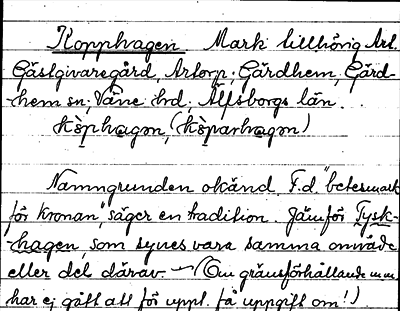 Kopphagen Mark tillhörig Art.
Gästgivaregård, Artorp; Gärdhem, Gärd-
hem sn; Väne hrd, Älfsborgs län.
kòphagən, (kòparhagən)
Namngrunden okänd. F.d. "betesmark
för kronan", säger en tradition. Jämför Tysk-
hagen, som synes vara samma område
eller del därav. – (Om gränsförhållande m.m.
har ej gått att för uppt. få uppgift om!)